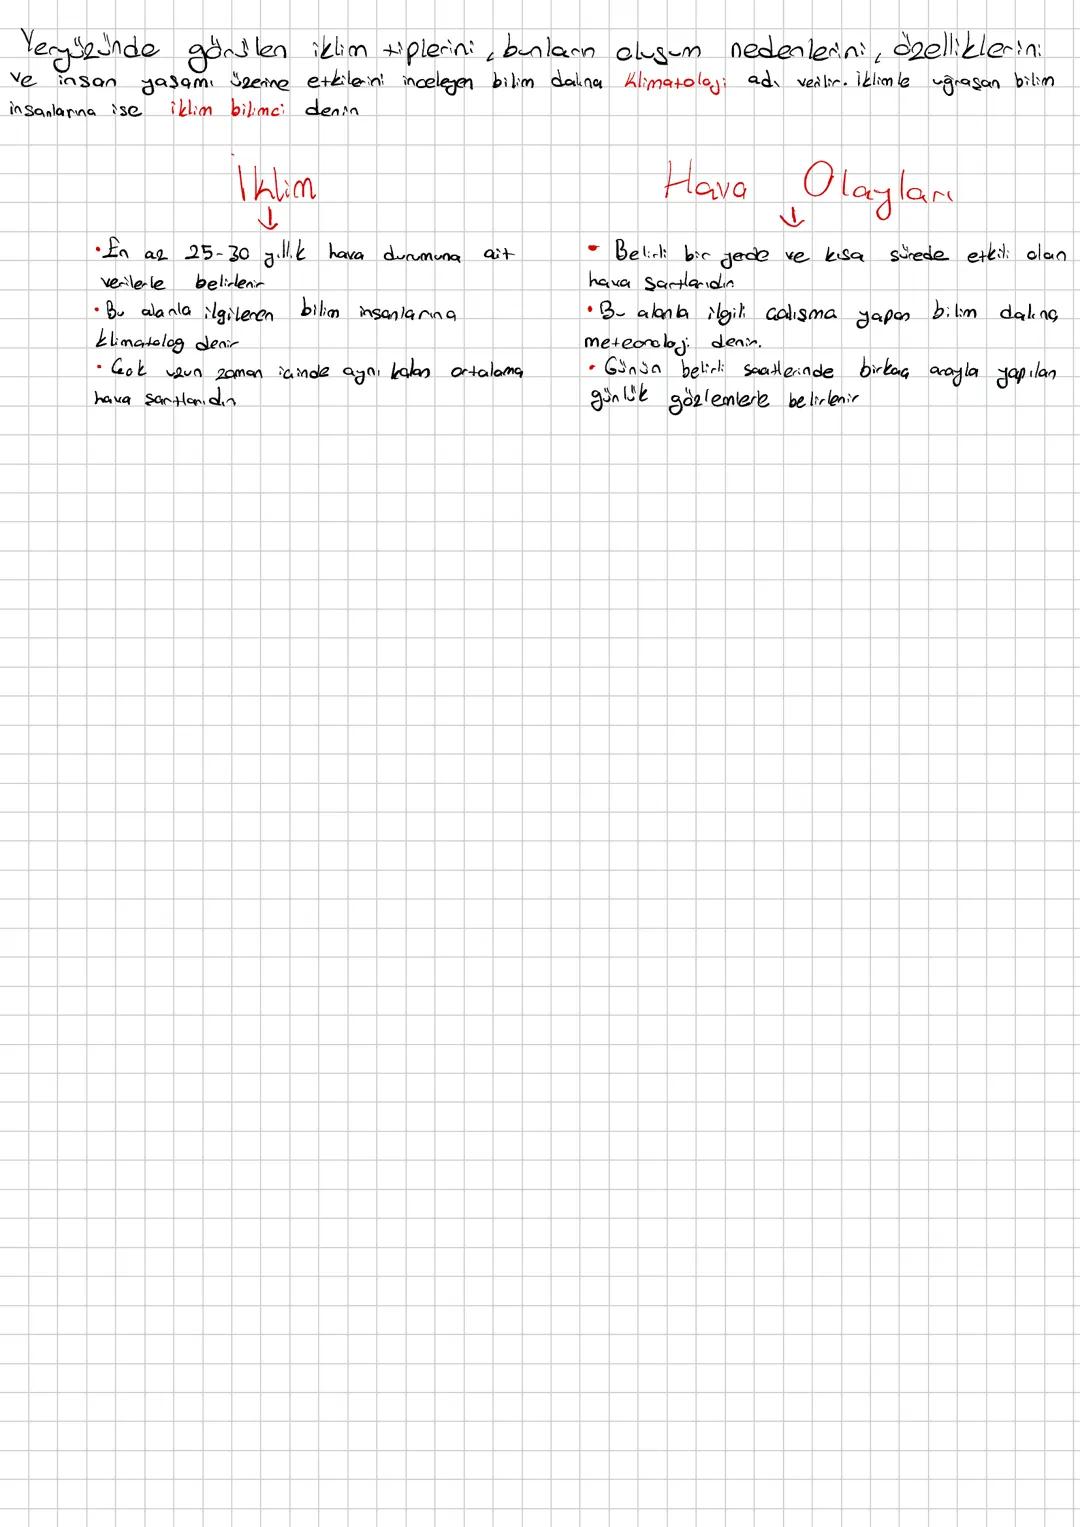 Yeryüzünde görülen iklim tiplerini, bunların oluşum nedenlerini, özelliklerini
ve insan yaşamı üzerine etkilerini inceleyen bilim dalına Klimatoloji adı verilir. İklimle uğraşan bilim
insanlarına ise iklim bilimci denir
İklim
↓
• En az 25-30 yıllık hava durumuna ait
verilerle belirlenir
• Bu alanla ilgilenen bilim insanlarına
klimatolog denir
• Çok uzun zaman içinde aynı kalan ortalama
hava şartlarıdır
Hava Olayları
↓
• Belirli bir yerde ve kısa sürede etkili olan
hava şartlarıdır
• Bu alanla ilgili çalışma yapan bilim dalına
meteoroloji denir.
• Günün belirli saatlerinde birkaç arayla yapılan
günlük gözlemlerle belirlenir